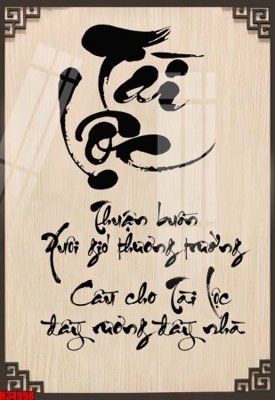 Tài
Lộc
Thuận buồn
Xuôi gió thương trường
Cầu cho Tài Lộc
đầy rương đầy nhà
H34998